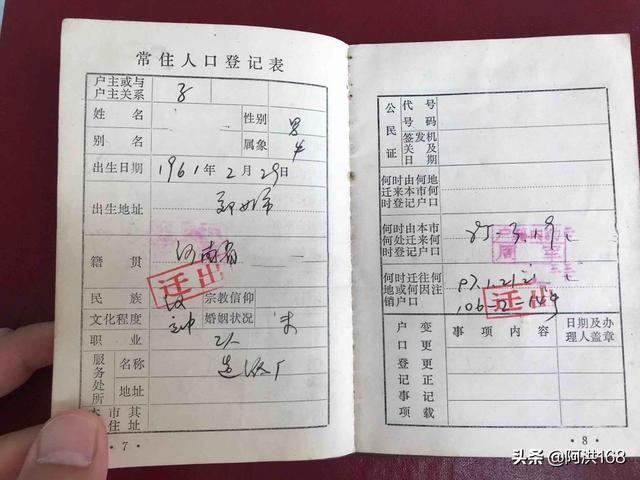 常住人口登记表
户主或与
户主关系 子
姓名 性别 男
别名 属象 牛
出生日期 1961年2月29日
出生地址 郑州市
籍贯 河南省
迁出
民族 汉 宗教信仰
文化程度 婚姻状况 未
职业 工人
服务处所 名称 造纸厂
地址
本市其
住址
·7·
公民证 代号
号码
签发机
关及
日期
何时由何地
迁来本市何
时登记户口
何时由本市
何处迁来何
时登记户口
何时迁往何
地或何因注
销户口
迁出
户口登记事项 变更更正记载
事项内容 日期及办
理人盖章
·8·
头条 @阿洪168